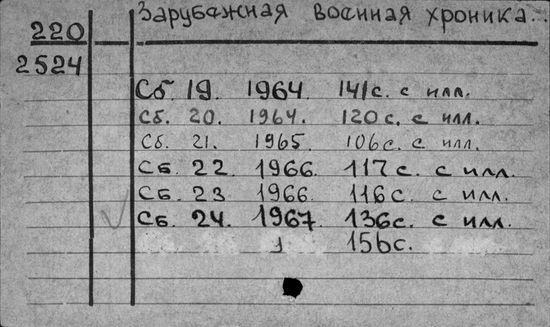 Зарубажная военная хроника...
220
2524
Сб. 19. 1964 141с. с илл.
Сб. 20. 1964. 120с. с илл.
Сб. 21. 1965 106с. с илл.
Сб. 22 1966. 117с. с илл.
Сб. 23 1966 116с. с илл.
Сб. 24. 1967. 136с. с илл.
1 156с.